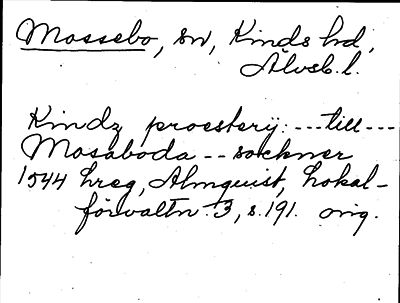 Mossebo, sn, Kinds hd,
Älvsb. l.
Kindz proesterij: --- till ---
Mosaboda -- sockner
1544 hreg, Almquist, Lokal-
förvaltn. 3, s. 191. orig.